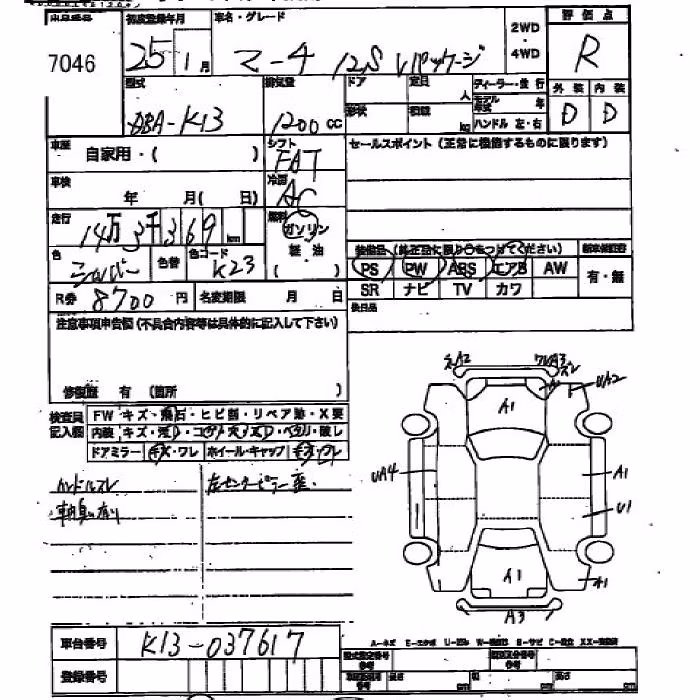 初度登録年月 車名・グレード 2WD ・ 4WD 評価点
7046 25 1月 マーチ 12S Vパッケージ R
型式 排気量 ドア 定員 人 ディーラー・並行 外装 内装
DBA-K13 1200cc 形状 積載 kg モデル年式 年 ハンドル 左・右 D D
車歴 自家用・( ) シフト FAT セールスポイント(正常に機能するものに限ります)
車検 年 月( 日) 冷房 AC
走行 14万3千369km 燃料 ガソリン 軽油 ( )
色 シルバー 色替 色コード K23
装備品(純正品に限り○をつけてください)
PS PW ABS エアB AW 有・無
SR ナビ TV カワ
R券 8700円 名変期限 月 日 後日品
注意事項申告欄(不具合内容等は具体的に記入して下さい)
修復歴 有 (箇所 )
検査員記入欄 FW キズ・飛石・ヒビ割・リペア跡・X要
内装
ドアミラー キズ・ワレ ホイール・キャップ キズ・ワレ
ハンドルスレ 左センターピラー
車内臭い有り
A2 ワレA3 ズレ
UA2
A1
UA4
A1
U1
A1
A1
A3
車台番号 K13-037617
登録番号
A-キズ
cm cm cm